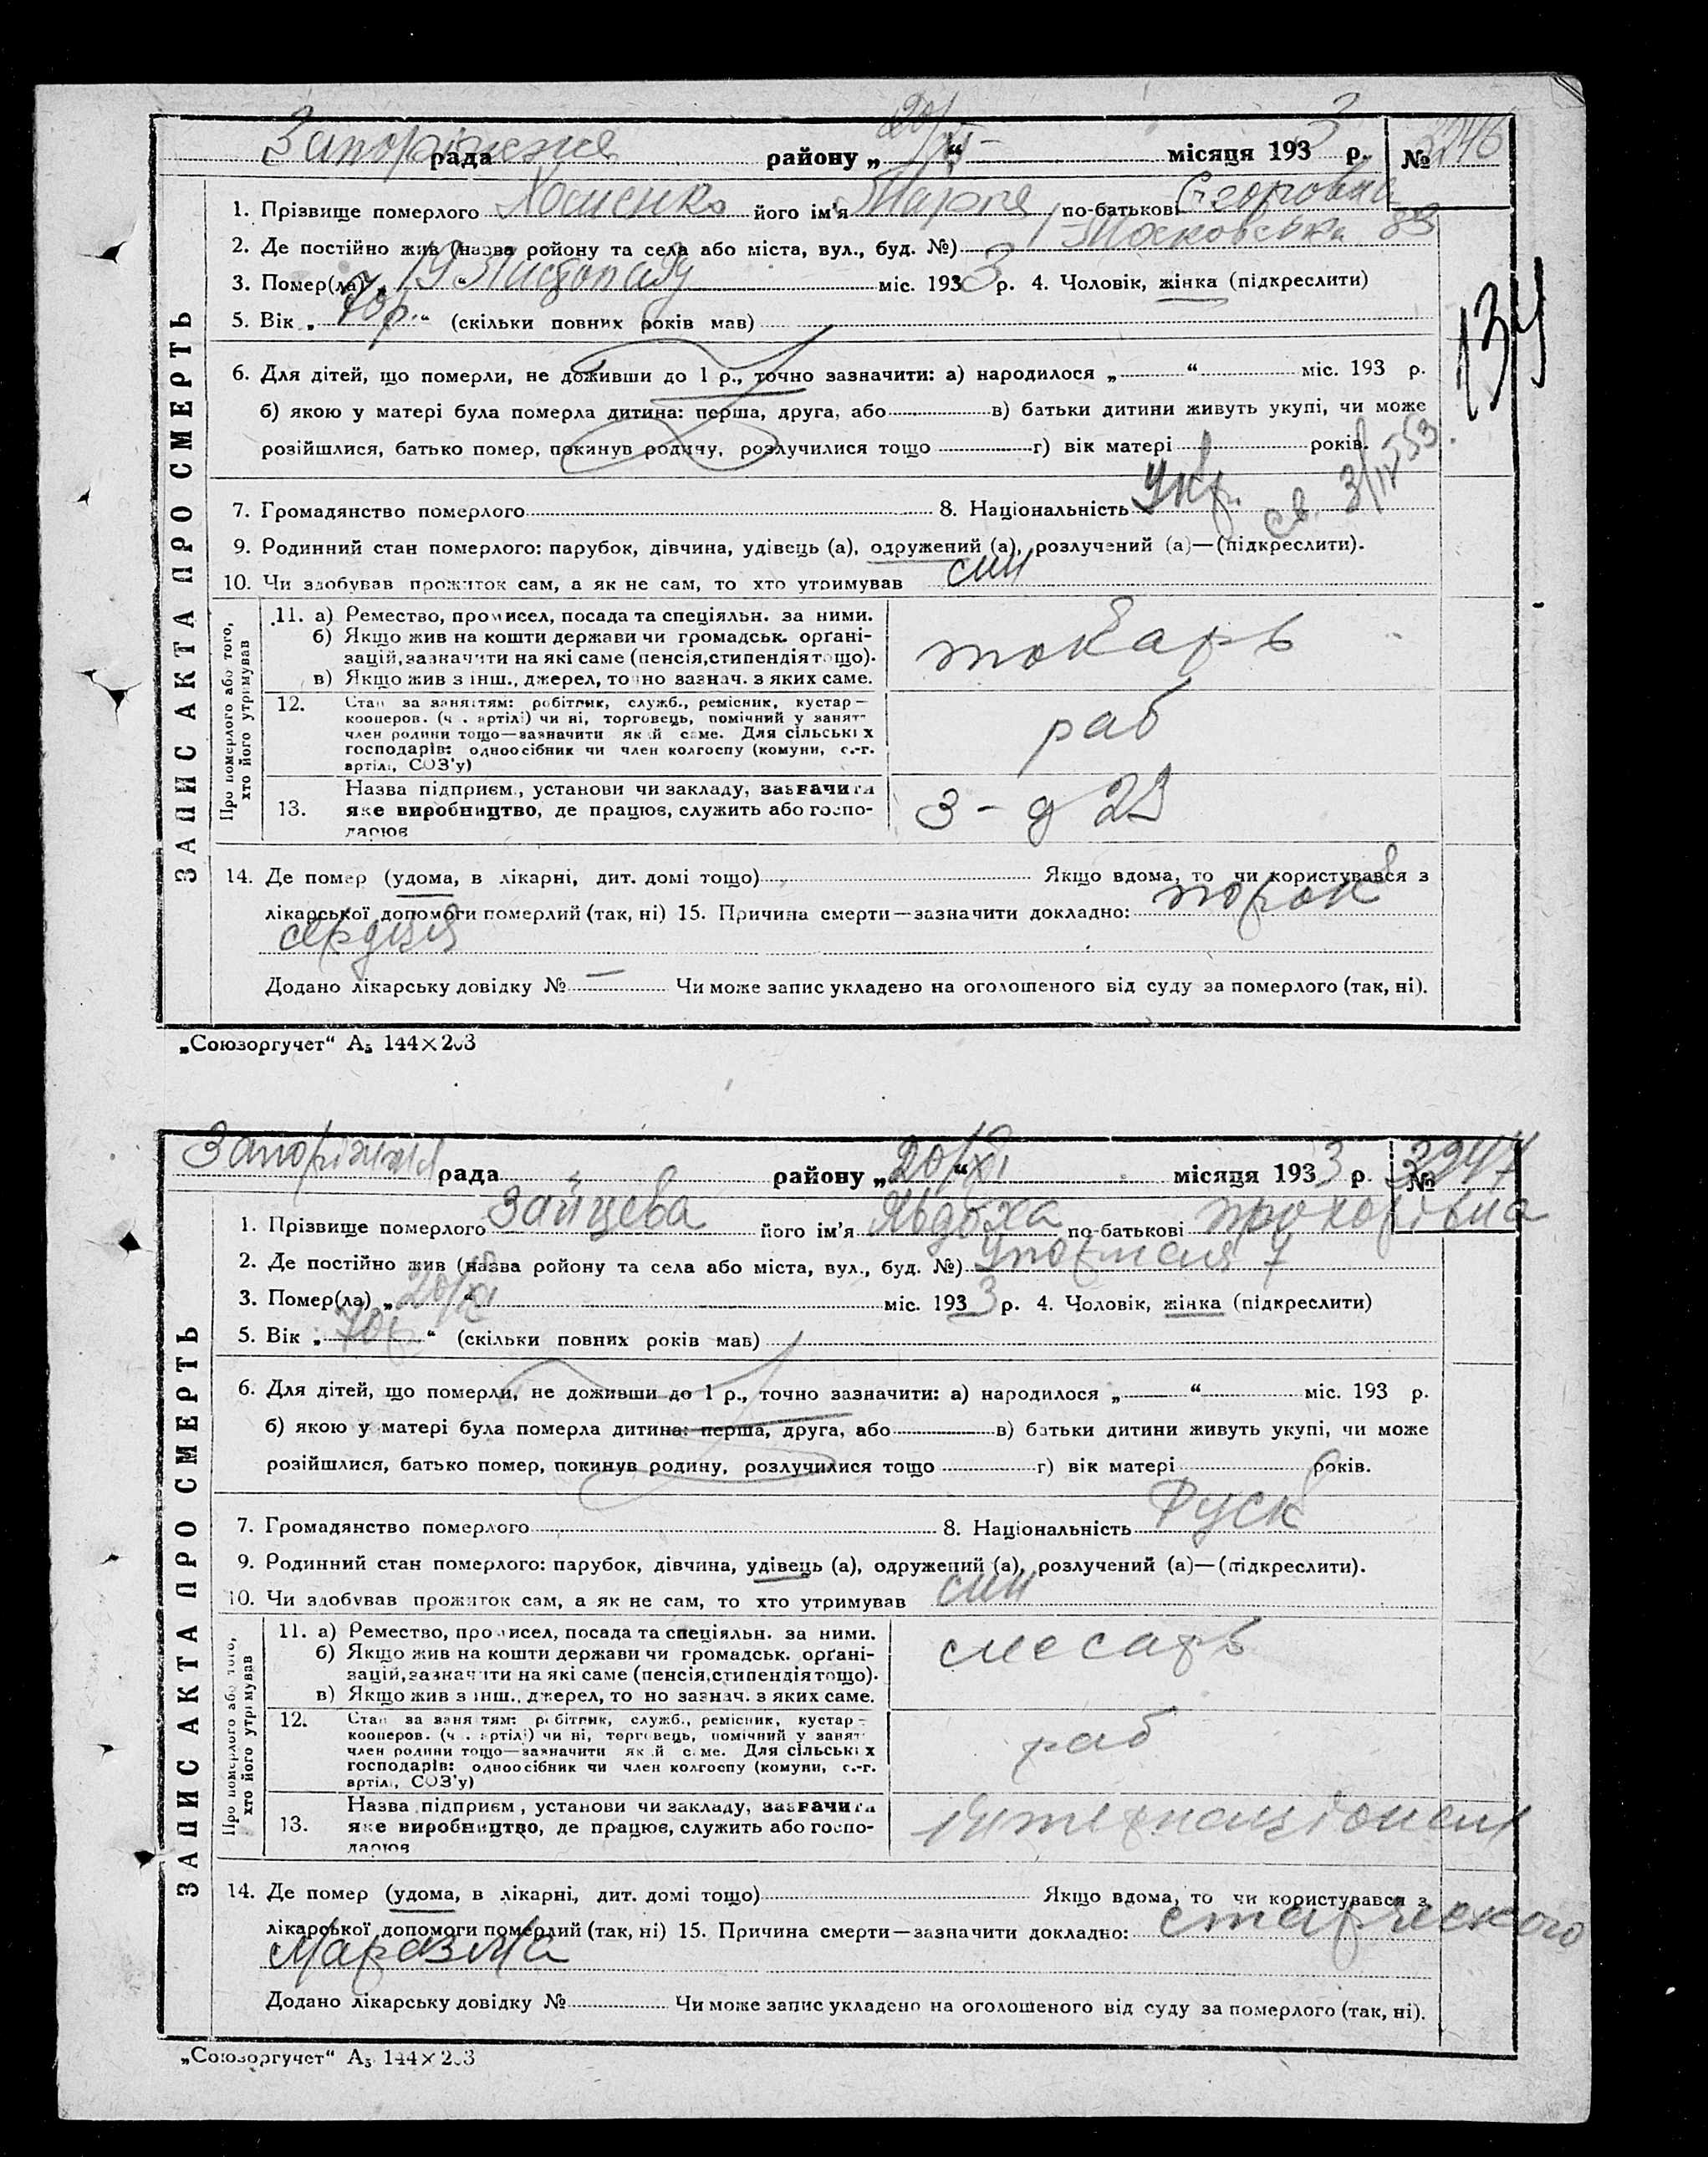 Запоріжжя рада району „20/XI“ місяця 1933 р. № 3246
1. Прізвище померлого Хоменко його ім'я Марія по-батькові Єгоровна
2. Де постійно жив (назва ройону та села або міста, вул., буд. №) Московська 83
3. Помер(ла) „19“ Листопаду міс. 1933 р. 4. Чоловік, жінка (підкреслити)
5. Вік „70 р.“ (скільки повних років мав)
6. Для дітей, що померли, не доживши до 1 р., точно зазначити: а) народилося „ “ міс. 193 р.
б) якою у матері була померла дитина: перша, друга, або в) батьки дитини живуть укупі, чи може
розійшлися, батько помер, покинув родину, розлучилися тощо г) вік матері років.
134
св. 3/IV 53.
7. Громадянство померлого 8. Національність Укр.
9. Родинний стан померлого: парубок, дівчина, удівець (а), одружений (а), розлучений (а)—(підкреслити).
10. Чи здобував прожиток сам, а як не сам, то хто утримував син
Про померлого або того, хто його утримував
11. а) Ремество, промисел, посада та спеціяльн. за ними.
б) Якщо жив на кошти держави чи громадськ. орґані-
зацій, зазначити на які саме (пенсія, стипендія тощо).
в) Якщо жив з інш., джерел, точно зазнач. з яких саме.
токарь
12. Стан за заняттям: робітник, служб., ремісник, кустар—
кооперов. (ч. артілі) чи ні, торговець, помічний у занят-
член родини тощо—зазначити який саме. Для сільських
господарів: одноосібник чи член колгоспу (комуни, с.-г.
артілі, СОЗ'у)
раб
13. Назва підприєм., установи чи закладу, зазначити
яке виробництво, де працює, служить або госпо-
дарює
З-д 29
14. Де помер (удома, в лікарні, дит. домі тощо) Якщо вдома, то чи користувався з
лікарської допомоги померлий (так, ні) 15. Причина смерти—зазначити докладно: порок
сердця
Додано лікарську довідку № — Чи може запис укладено на оголошеного від суду за померлого (так, ні).
ЗАПИС АКТА ПРО СМЕРТЬ
„Союзоргучет“ А₅ 144×203
Запоріжжя рада району „20/XI“ місяця 1933 р. № 3247
1. Прізвище померлого Зайцева його ім'я Явдоха по-батькові Прохорівна
2. Де постійно жив (назва ройону та села або міста, вул., буд. №) 7
3. Помер(ла) „20/XI“ міс. 1933 р. 4. Чоловік, жінка (підкреслити)
5. Вік „70 р“ (скільки повних років мав)
6. Для дітей, що померли, не доживши до 1 р., точно зазначити: а) народилося „ “ міс. 193 р.
б) якою у матері була померла дитина: перша, друга, або в) батьки дитини живуть укупі, чи може
розійшлися, батько помер, покинув родину, розлучилися тощо г) вік матері років.
7. Громадянство померлого 8. Національність Руск
9. Родинний стан померлого: парубок, дівчина, удівець (а), одружений (а), розлучений (а)—(підкреслити).
10. Чи здобував прожиток сам, а як не сам, то хто утримував син
Про померлого або того, хто його утримував
11. а) Ремество, промисел, посада та спеціяльн. за ними.
б) Якщо жив на кошти держави чи громадськ. орґані-
зацій, зазначити на які саме (пенсія, стипендія тощо).
в) Якщо жив з інш., джерел, точно зазнач. з яких саме.
слесарь
12. Стан за заняттям: робітник, служб., ремісник, кустар—
кооперов. (ч. артілі) чи ні, торговець, помічний у занят-
член родини тощо—зазначити який саме. Для сільських
господарів: одноосібник чи член колгоспу (комуни, с.-г.
артілі, СОЗ'у)
раб
13. Назва підприєм., установи чи закладу, зазначити
яке виробництво, де працює, служить або госпо-
дарює
Інтернаціонал
14. Де помер (удома, в лікарні, дит. домі тощо) Якщо вдома, то чи користувався з
лікарської допомоги померлий (так, ні) 15. Причина смерти—зазначити докладно: старческого
Маразма
Додано лікарську довідку № Чи може запис укладено на оголошеного від суду за померлого (так, ні).
ЗАПИС АКТА ПРО СМЕРТЬ
„Союзоргучет“ А₅ 144×203